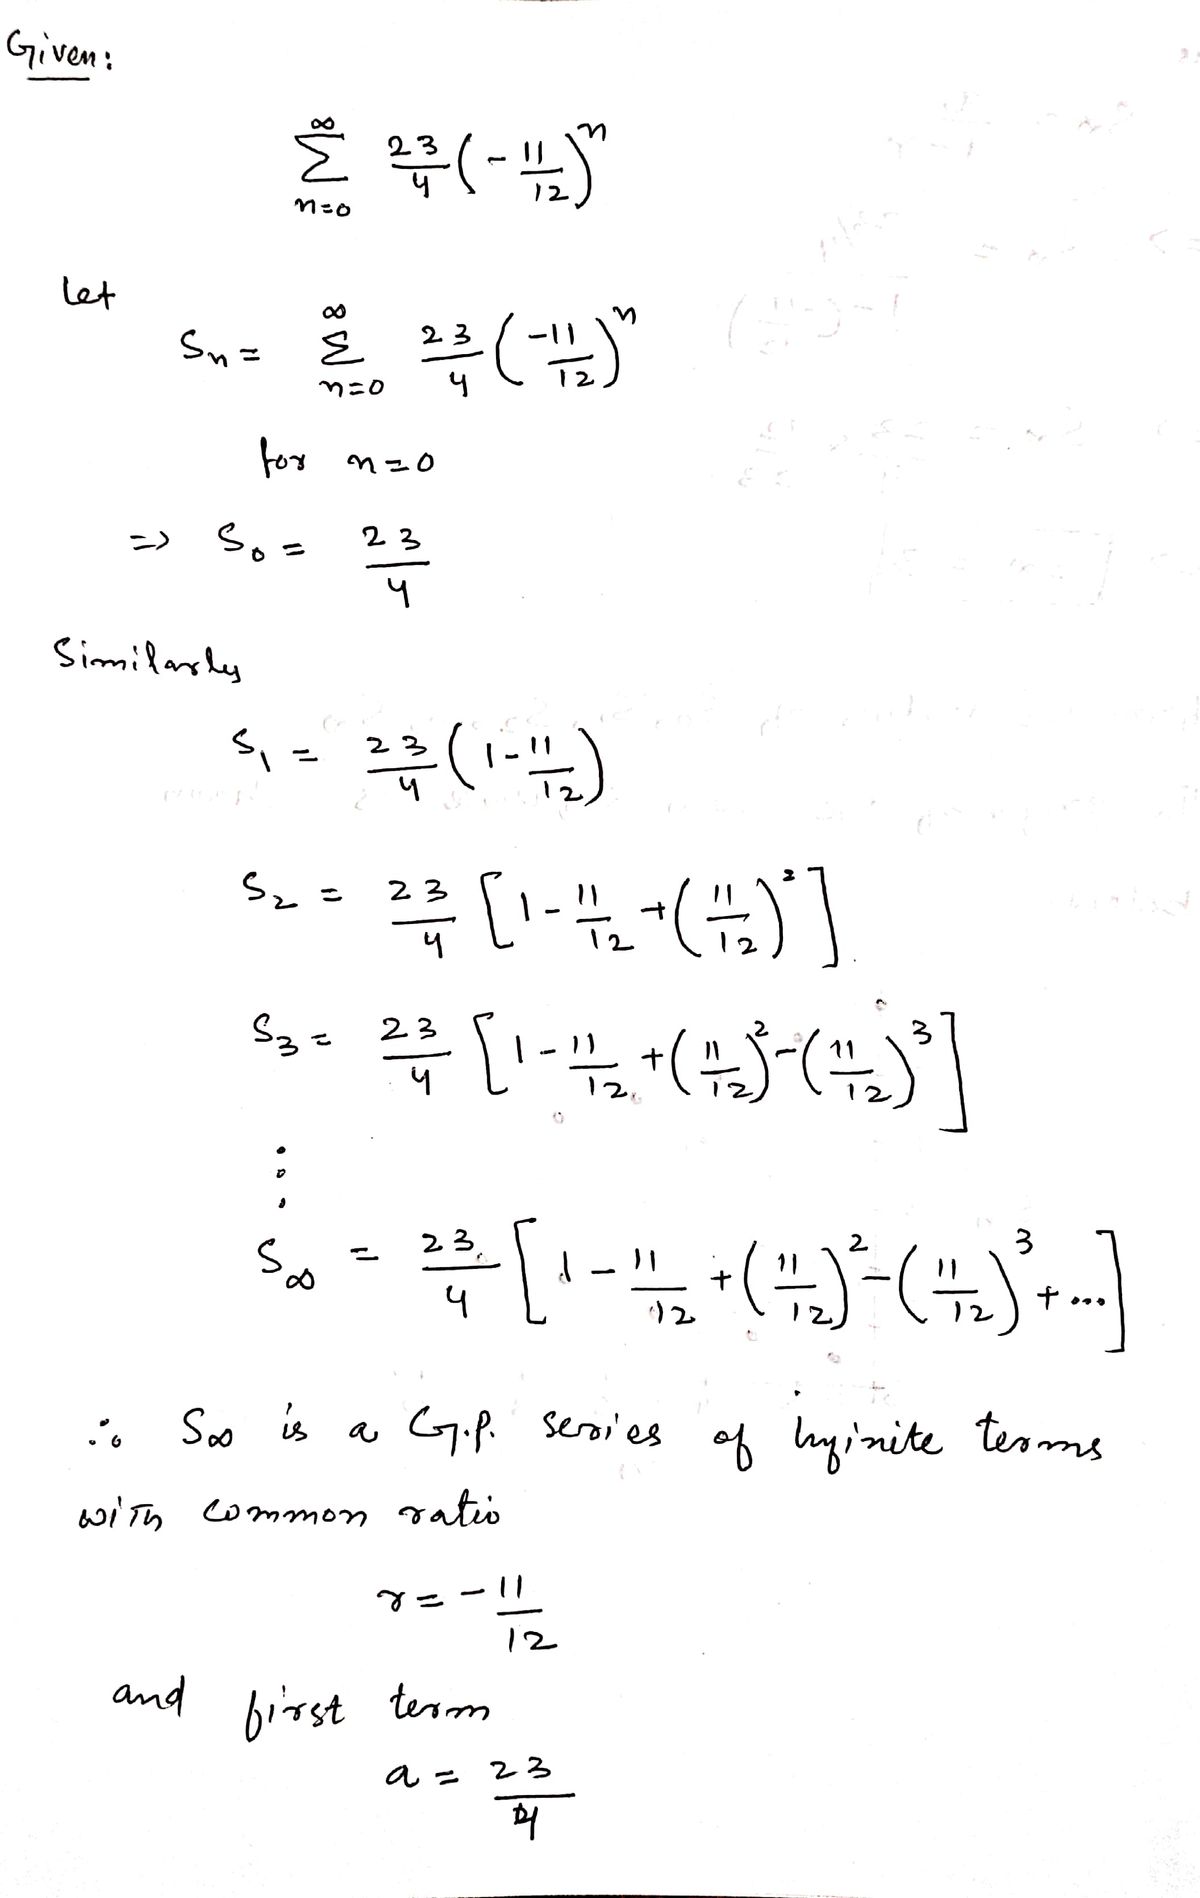 Given:
∞
Σ 23/4 (-11/12)^n
n=0
Let
Sn = ∞ Σ n=0 23/4 (-11/12)^n
for n=0
=> S0 = 23/4
Similarly
S1 = 23/4 (1-11/12)
S2 = 23/4 [1-11/12+(11/12)^2]
S3 = 23/4 [1-11/12+(11/12)^2-(11/12)^3]
⋮
S∞ = 23/4 [1-11/12+(11/12)^2-(11/12)^3+...]
∴ S∞ is a G.P. series of infinite terms
with common ratio
r = -11/12
and first term
a = 23/4